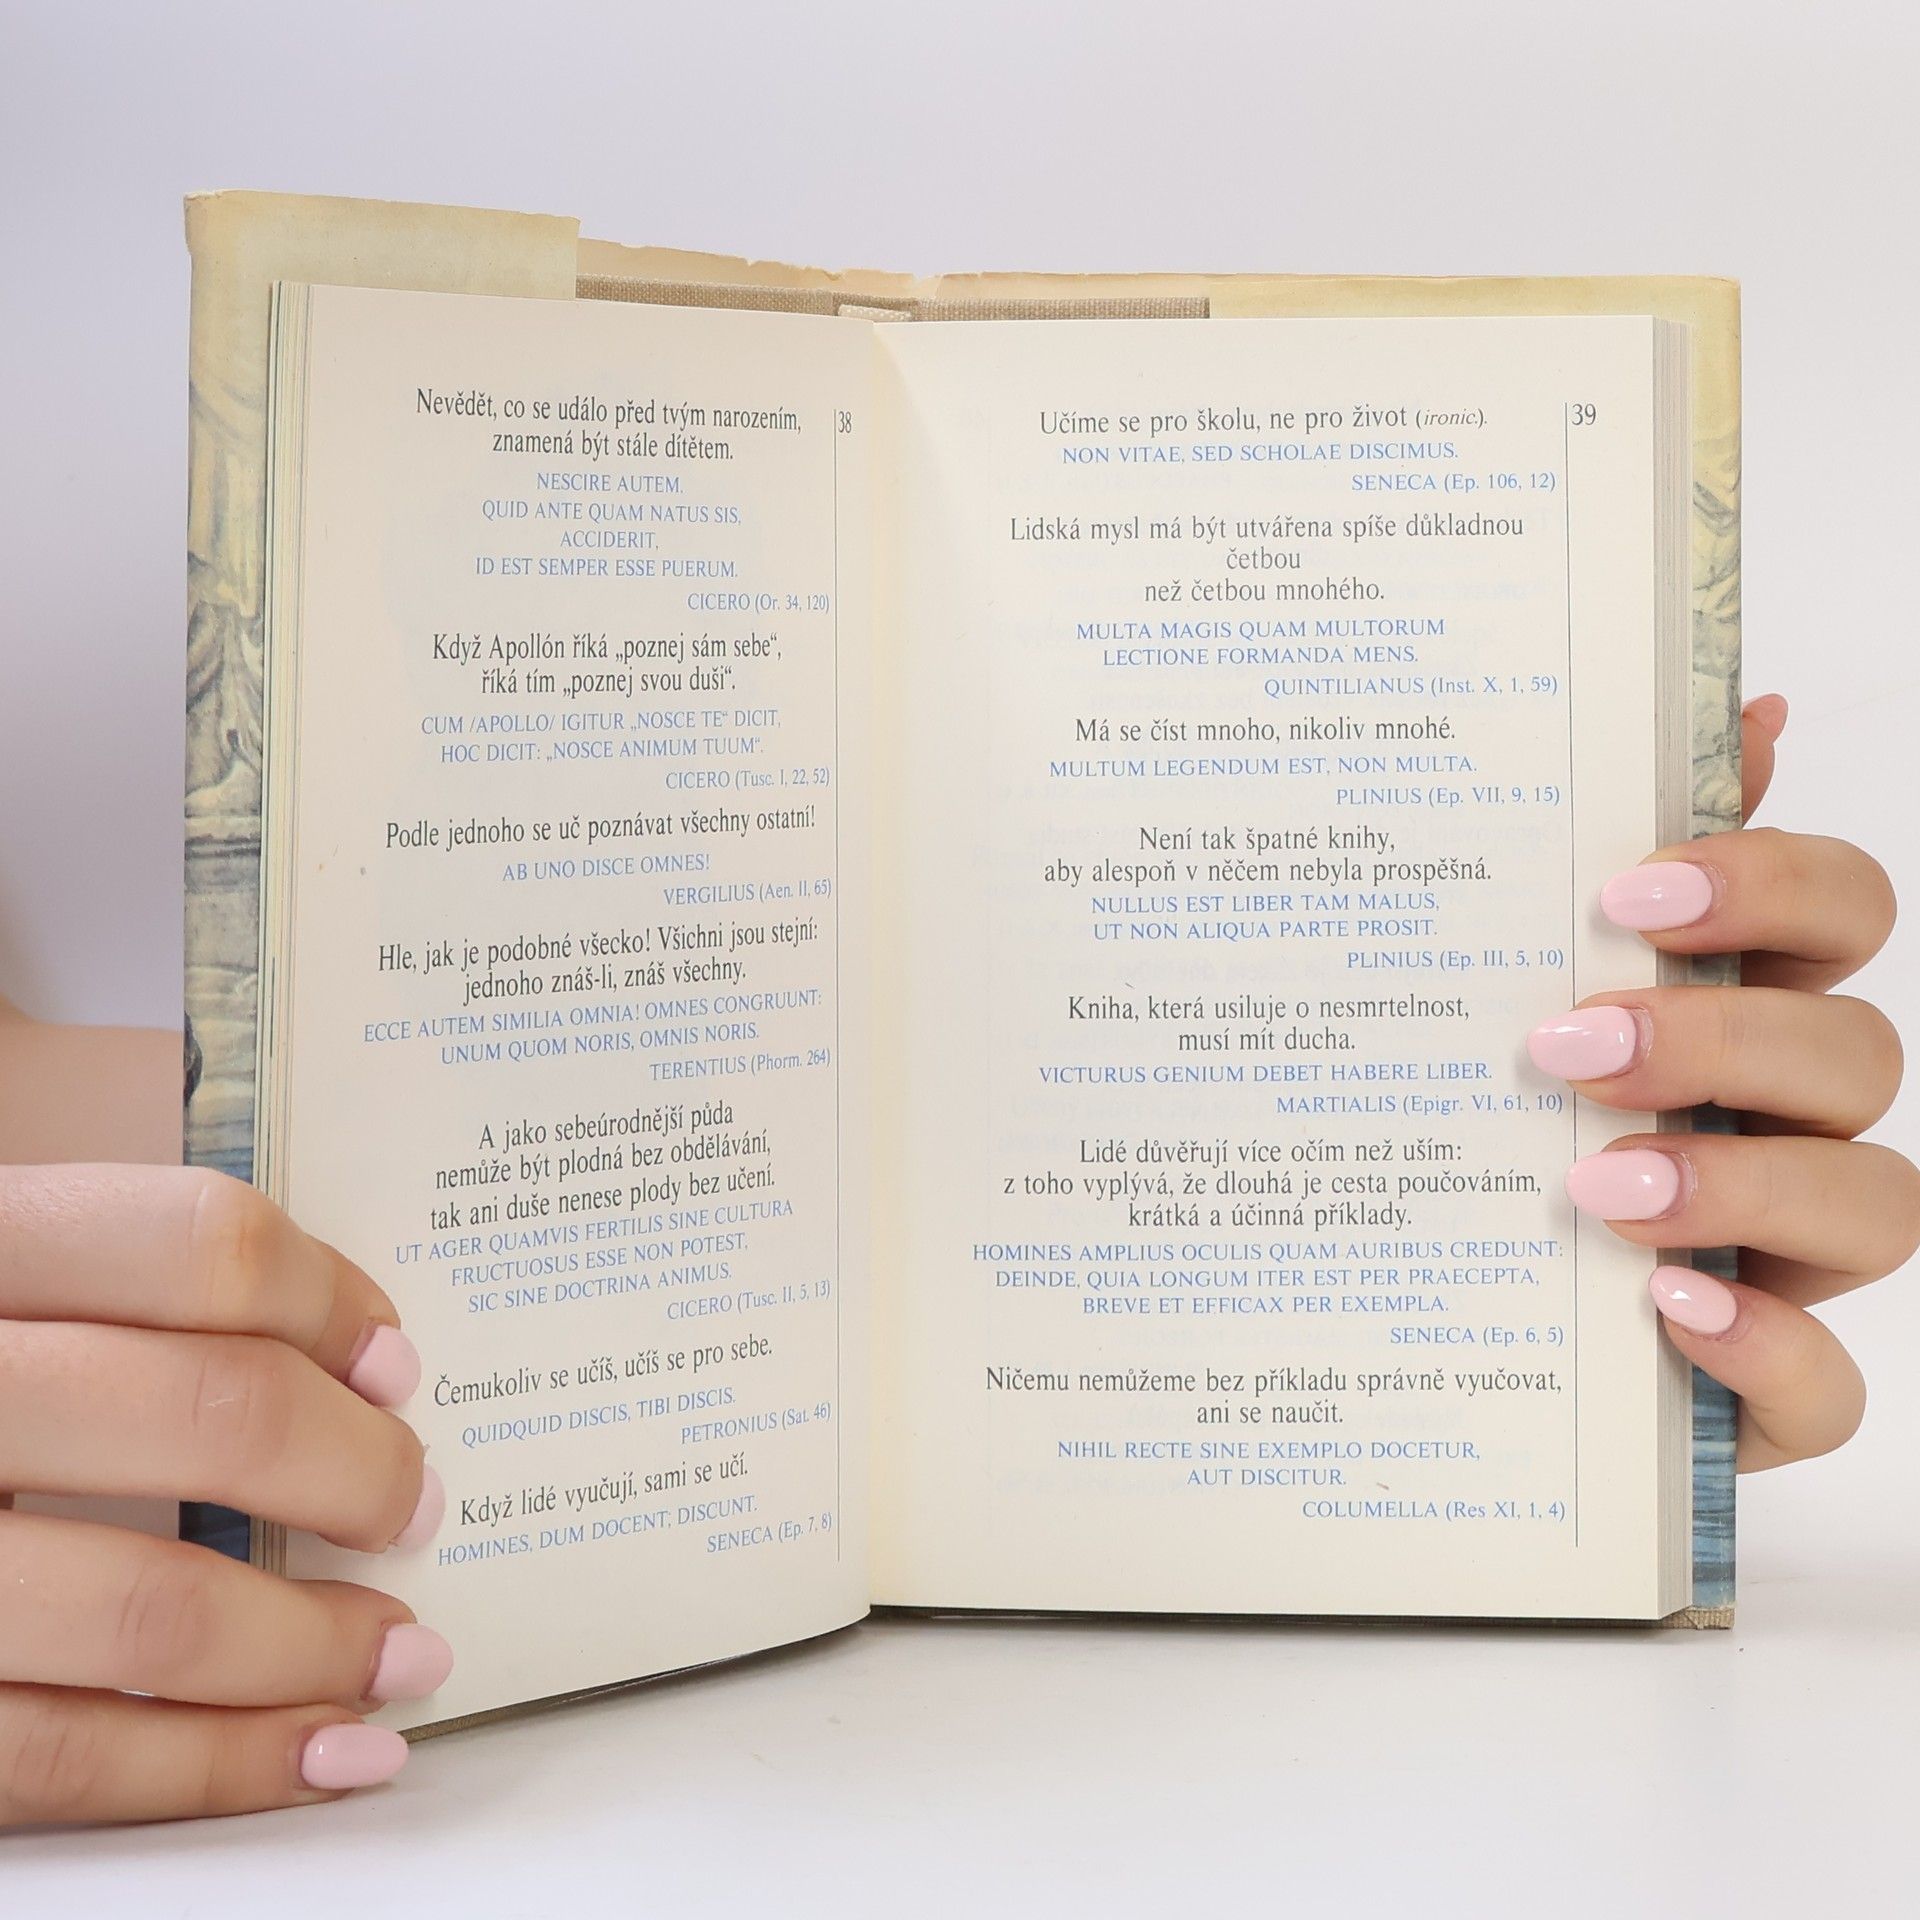 38
Nevědět, co se událo před tvým narozením,
znamená být stále dítětem.
NESCIRE AUTEM,
QUID ANTE QUAM NATUS SIS,
ACCIDERIT,
ID EST SEMPER ESSE PUERUM.
CICERO (Or. 34, 120)
Když Apollón říká „poznej sám sebe“,
říká tím „poznej svou duši“.
CUM /APOLLO/ IGITUR „NOSCE TE“ DICIT,
HOC DICIT: „NOSCE ANIMUM TUUM“.
CICERO (Tusc. I, 22, 52)
Podle jednoho se uč poznávat všechny ostatní!
AB UNO DISCE OMNES!
VERGILIUS (Aen. II, 65)
Hle, jak je podobné všecko! Všichni jsou stejní:
jednoho znáš-li, znáš všechny.
ECCE AUTEM SIMILIA OMNIA! OMNES CONGRUUNT:
UNUM QUOM NORIS, OMNIS NORIS.
TERENTIUS (Phorm. 264)
A jako sebeúrodnější půda
nemůže být plodná bez obdělávání,
tak ani duše nenese plody bez učení.
UT AGER QUAMVIS FERTILIS SINE CULTURA
FRUCTUOSUS ESSE NON POTEST,
SIC SINE DOCTRINA ANIMUS.
CICERO (Tusc. II, 5, 13)
Čemukoliv se učíš, učíš se pro sebe.
QUIDQUID DISCIS, TIBI DISCIS.
PETRONIUS (Sat. 46)
Když lidé vyučují, sami se učí.
HOMINES, DUM DOCENT, DISCUNT.
SENECA (Ep. 7, 8)
39
Učíme se pro školu, ne pro život (ironic.).
NON VITAE, SED SCHOLAE DISCIMUS.
SENECA (Ep. 106, 12)
Lidská mysl má být utvářena spíše důkladnou
četbou
než četbou mnohého.
MULTA MAGIS QUAM MULTORUM
LECTIONE FORMANDA MENS.
QUINTILIANUS (Inst. X, 1, 59)
Má se číst mnoho, nikoliv mnohé.
MULTUM LEGENDUM EST, NON MULTA.
PLINIUS (Ep. VII, 9, 15)
Není tak špatné knihy,
aby alespoň v něčem nebyla prospěšná.
NULLUS EST LIBER TAM MALUS,
UT NON ALIQUA PARTE PROSIT.
PLINIUS (Ep. III, 5, 10)
Kniha, která usiluje o nesmrtelnost,
musí mít ducha.
VICTURUS GENIUM DEBET HABERE LIBER.
MARTIALIS (Epigr. VI, 61, 10)
Lidé důvěřují více očím než uším:
z toho vyplývá, že dlouhá je cesta poučováním,
krátká a účinná příklady.
HOMINES AMPLIUS OCULIS QUAM AURIBUS CREDUNT:
DEINDE, QUIA LONGUM ITER EST PER PRAECEPTA,
BREVE ET EFFICAX PER EXEMPLA.
SENECA (Ep. 6, 5)
Ničemu nemůžeme bez příkladu správně vyučovat,
ani se naučit.
NIHIL RECTE SINE EXEMPLO DOCETUR,
AUT DISCITUR.
COLUMELLA (Res XI, 1, 4)